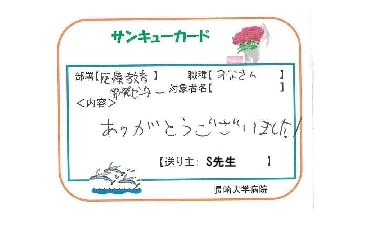 サンキューカード
部署【医療教育 】 職種【みなさん 】
開発センター 対象者名【 】
＜内容＞
ありがとうございました!
【送り主: S先生 】
長崎大学病院